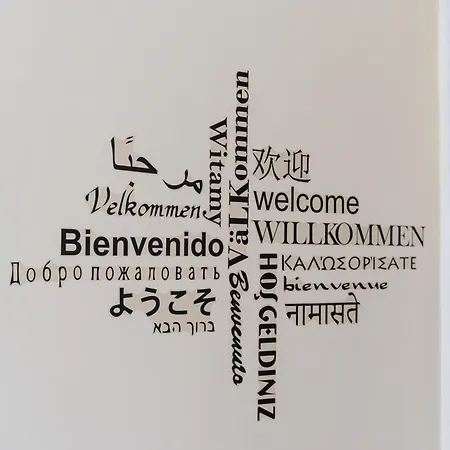 مرحبًا
Velkommen
Bienvenido
Добро пожаловать
ようこそ
ברוך הבא
Witamy
VäLKommen
Benvenuto
欢迎
welcome
WILLKOMMEN
ΚΑΛΏΣΟΡΊΣΑΤΕ
bienvenue
नामासते
HOŞGELDINIZ